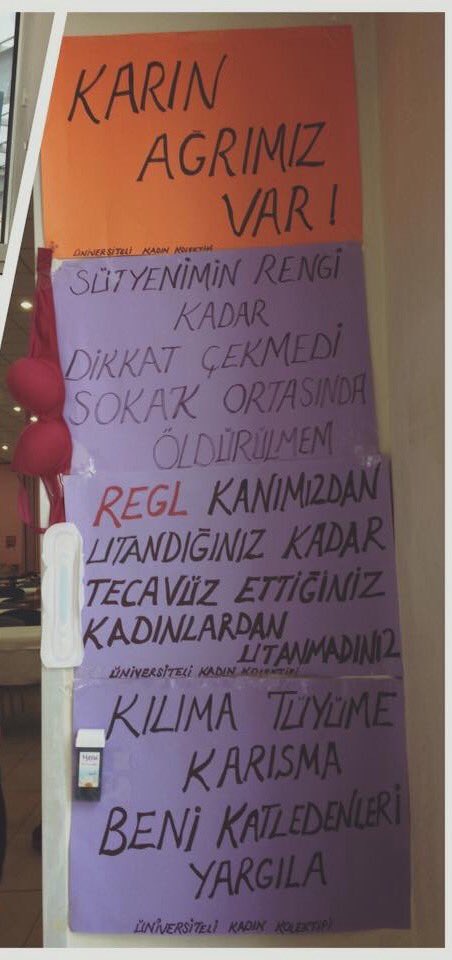 KARIN
AĞRIMIZ
VAR!
ÜNİVERSİTELİ KADIN KOLEKTİFİ
SÜTYENİMİN RENGİ
KADAR
DİKKAT ÇEKMEDİ
SOKAK ORTASINDA
ÖLDÜRÜLMEM
REGL KANIMIZDAN
UTANDIĞINIZ KADAR
TECAVÜZ ETTİĞİNİZ
KADINLARDAN
UTANMADINIZ
ÜNİVERSİTELİ KADIN KOLEKTİFİ
KILIMA TÜYÜME
KARISMA
BENİ KATLEDENLERİ
YARGILA
ÜNİVERSİTELİ KADIN KOLEKTİFİ